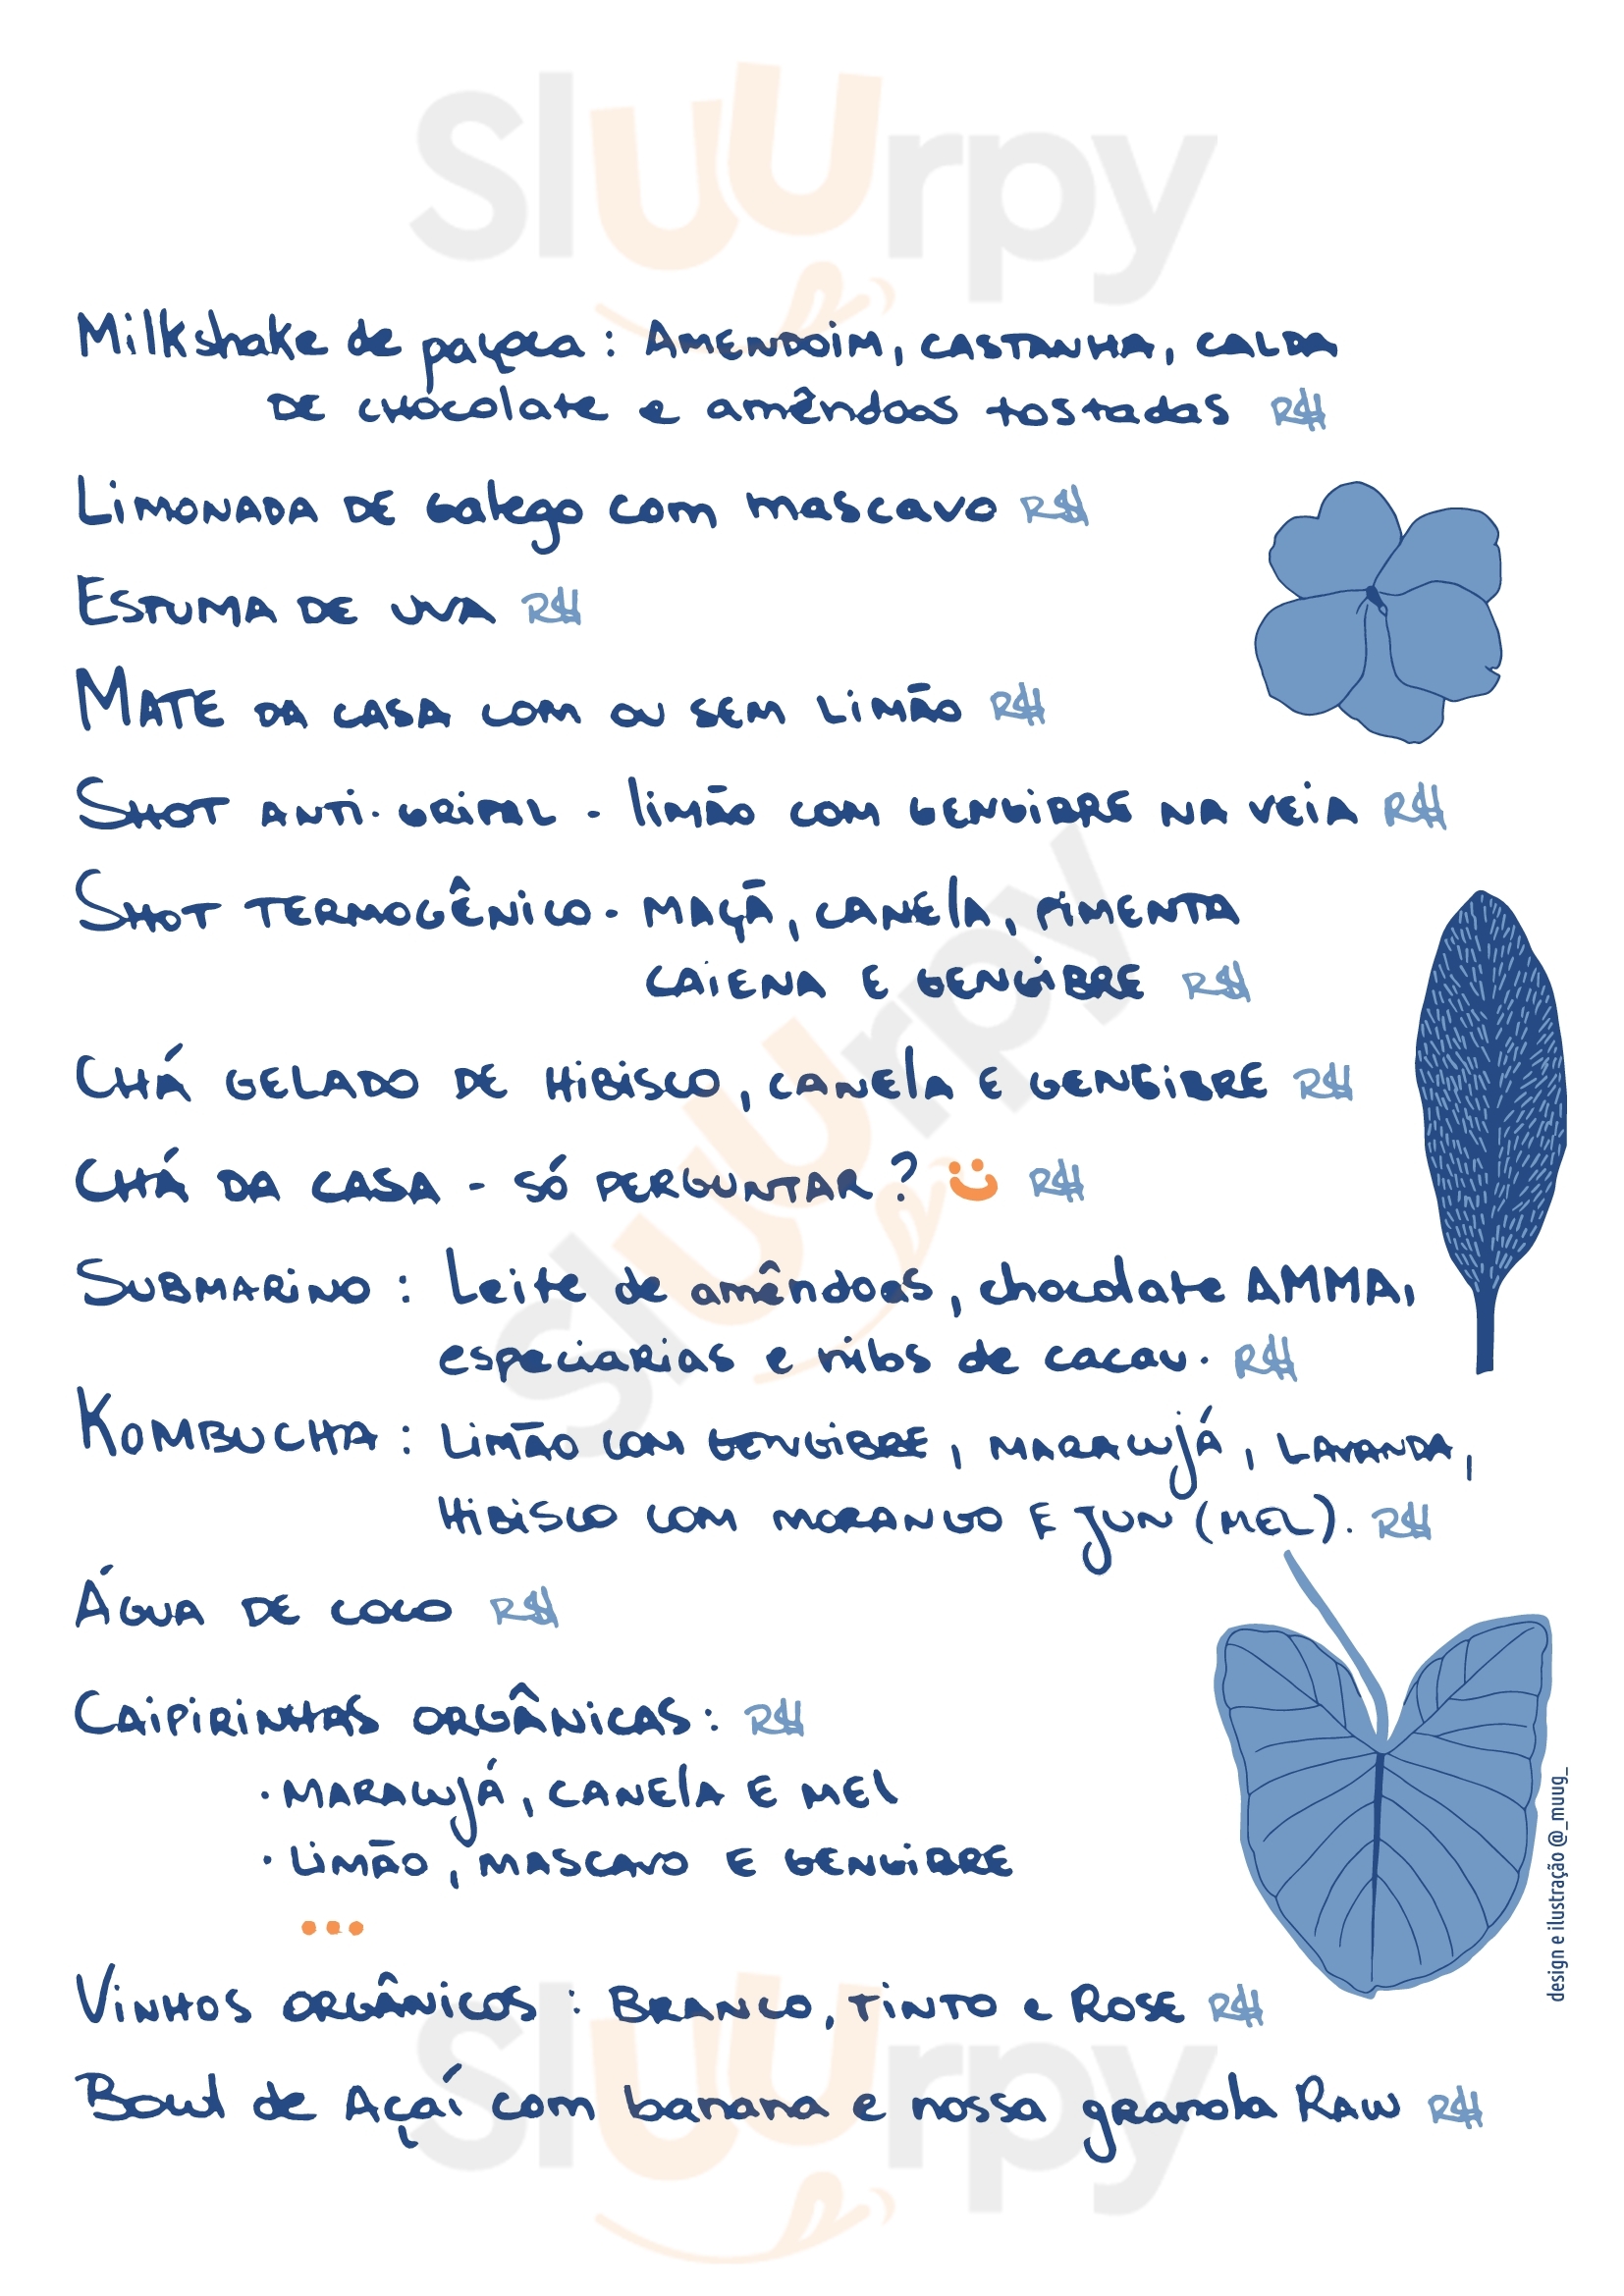 Sluurpy
Milkshake de paçoca : Amendoim, castanha, calda
de chocolate e amêndoas tostadas R$
Limonada de galego com mascavo R$
Estuma de uva R$
Mate da casa com ou sem limão R$
Shot anti-gripal - limão com gengibre na veia R$
Shot termogênico - maçã, canela, pimenta
caiena e gengibre R$
Chá gelado de hibisco, canela e gengibre R$
Chá da casa - só perguntar? R$
Sluurpy
Submarino : Leite de amêndoas, chocolate AMMA,
especiarias e nibs de cacau. R$
Kombucha : limão com gengibre, maracujá, lavanda,
hibisco com morango e jun (mel). R$
Água de coco R$
Caipirinhas orgânicas: R$
· maracujá, canela e mel
· limão, mascavo e gengibre
...
Vinhos orgânicos : Branco, tinto e Rose R$
Bowl de Açaí com banana e nossa granola Raw R$
Sluurpy
design e ilustração @_muug_